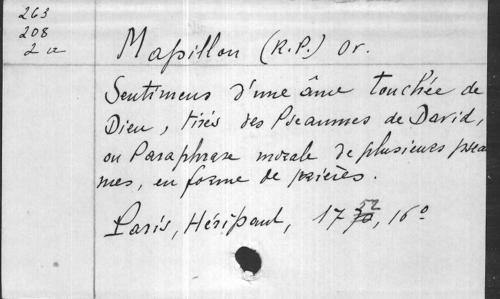 263
208
2 a
Massillon (R.P.) Or.
Sentimens d'une âme touchée de
Dieu, tirés des Pseaumes de David,
ou Paraphrase morale de plusieurs pseau
mes, en forme de prières.
Paris, Hérissant, 1752, 16º